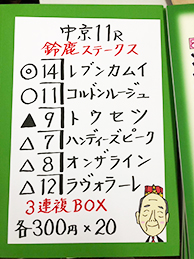 中京11R
鈴鹿ステークス
◎14 レブンカムイ
○11 コルドンルージュ
▲9 トウセツ
△7 ハンディーズピーク
△8 オンザライン
△12 ラヴォラーレ
3連複BOX
各300円×20